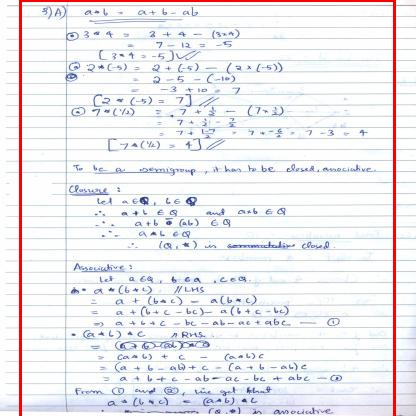 3) A) a*b = a+b-ab
3*4 = 3+4-(3×4)
= 7-12 = -5
[3*4 = -5]
2*(-5) = 2+(-5)-(2×(-5))
= 2-5-(-10)
= -3+10 = 7
[2*(-5) = 7]
7*(1/2) = 7+1/2-(7×1/2)
= 7+1/2-7/2
= 7+(1-7)/2 = 7+-6/2 = 7-3 = 4
[7*(1/2) = 4]
To be a semigroup, it has to be closed, associative.
Closure :
Let a∈Q, b∈Q
∴ a+b∈Q and a×b∈Q
∴ a+b-(ab)∈Q
∴ a*b∈Q
∴ (Q,*) is closed.
Associative :
Let a∈Q, b∈Q, c∈Q.
a*(b*c) //LHS
= a+(b*c)-a(b*c)
= a+(b+c-bc)-a(b+c-bc)
⇒ a+b+c-bc-ab-ac+abc — ①
(a*b)*c //RHS
= (a*b)+c-(a*b)c
= (a+b-ab)+c-(a+b-ab)c
= a+b+c-ab-ac-bc+abc — ②
From ① and ②, we get that
a*(b*c) = (a*b)*c
(Q,*) is associative